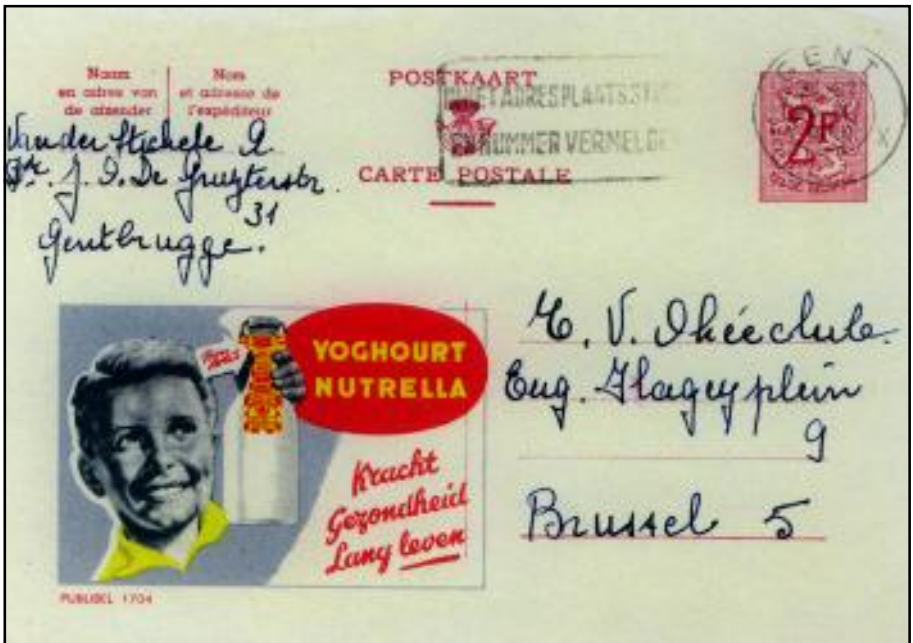 Naam
en adres van
de afzender
Nom
et adresse de
l'expéditeur
POSTKAART
CARTE POSTALE
IN HET ADRES PLAATS
EN NUMMER VERMELDE
GENT
X
2F
Van der Stichele A
J. O. De Gruyterstr.
31
Gentbrugge.
YOGHOURT
NUTRELLA
Kracht
Gezondheid
Lang leven
PUBLIBEL 1704
V. Theeclub
Eug. Flageyplein
9
Brussel 5